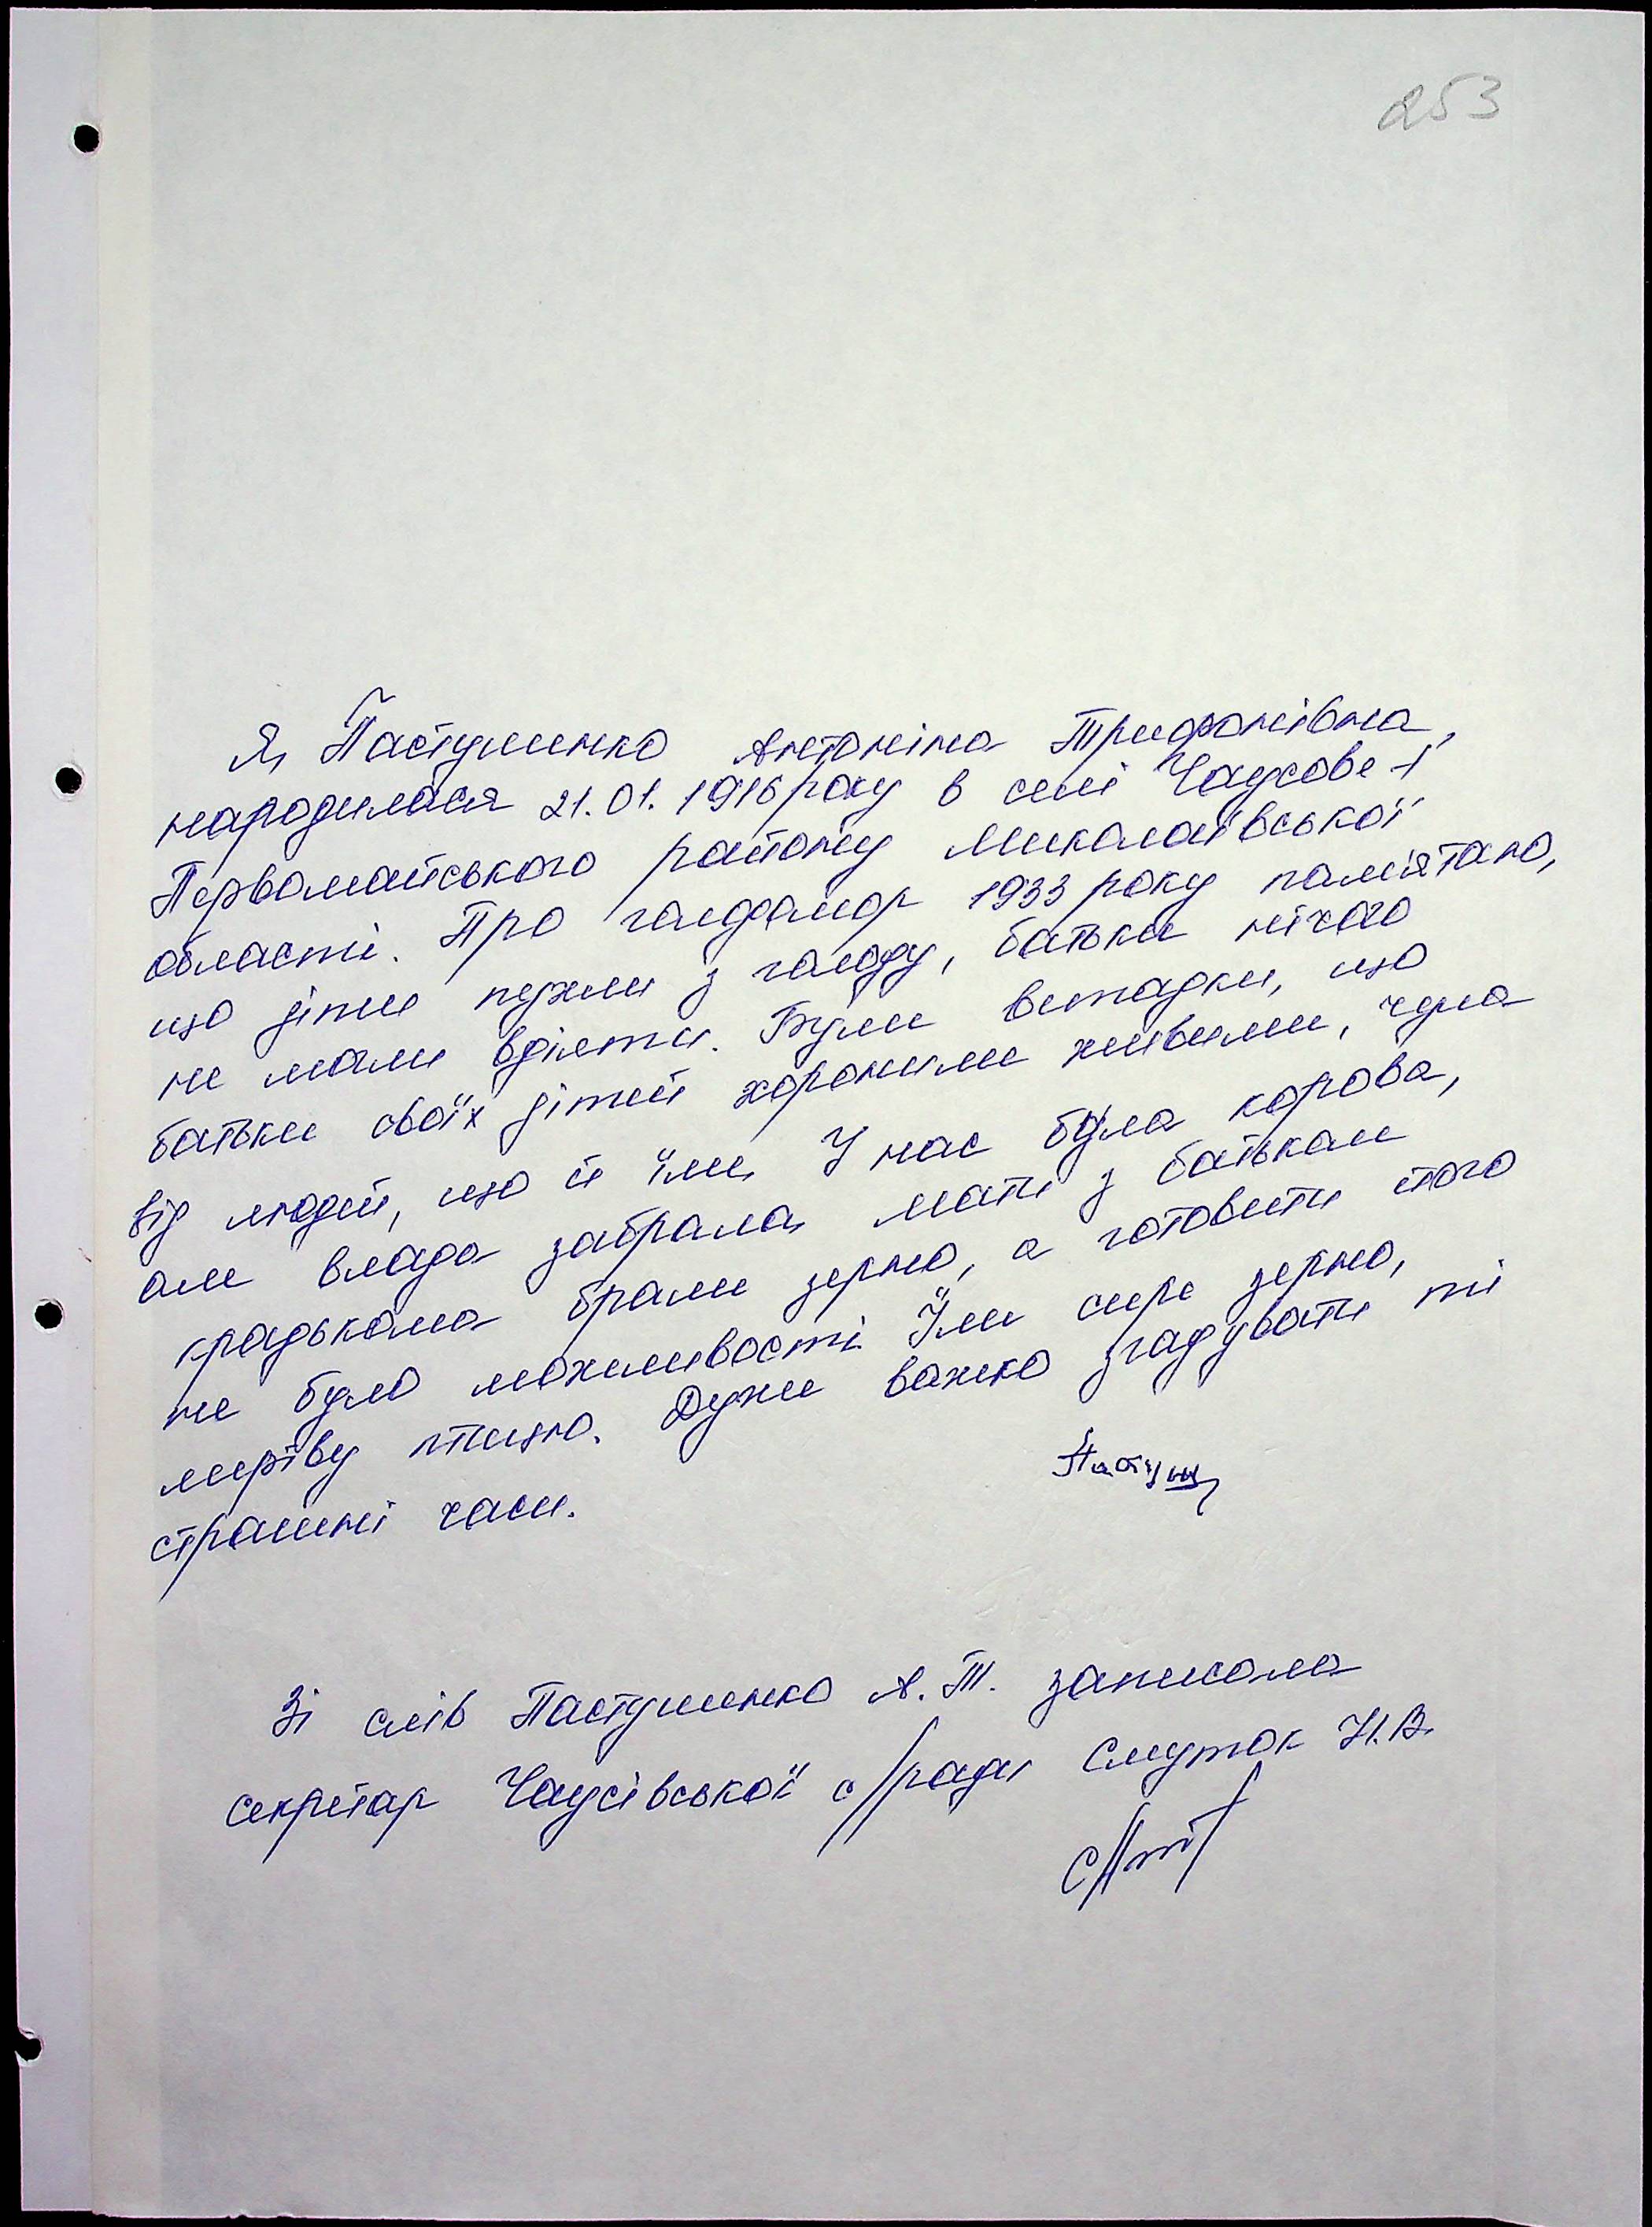 253
Я, Пастушенко Антоніна Трифонівна,
народилася 21.01.1916 року в селі Чаусове-1
Первомайського району Миколаївської
області. Про голодомор 1933 року пам'ятаю,
що діти пухли з голоду, батьки нічого
не мали вдіяти. Були випадки, що
батьки своїх дітей хоронили живими, чула
від людей, що й їли. У нас була корова,
але влада забрала, мати з батьком
крадькома брали зерно, а готовити його
не було можливості. Їли сире зерно,
мертву птицю. Дуже важко згадувати ті
страшні часи.
Пастуш
Зі слів Пастушенко А.Т. записала
секретар Чаусівської с/ради Смуток Н.В.